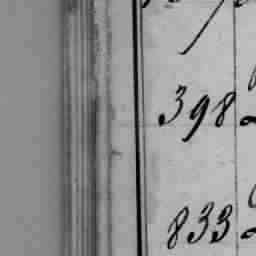 398
833